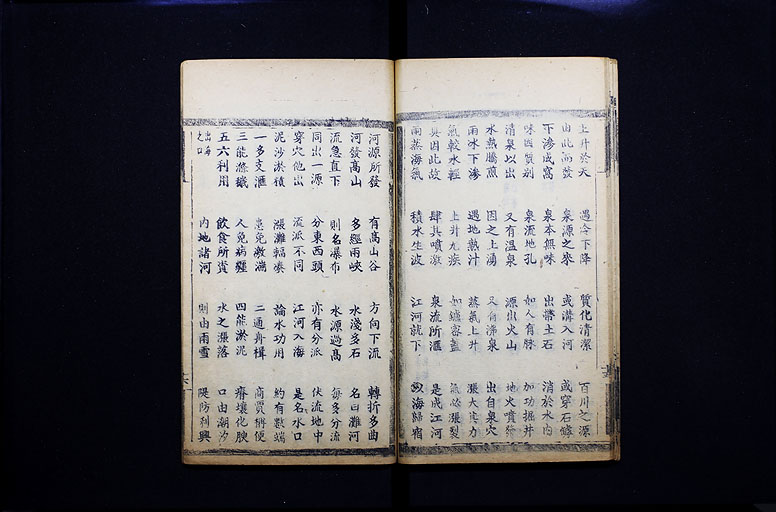 上升於天 遇冷下降 質化清潔 百川之源
由此而發 泉源之來 或溝入河 或穿石罅
下滲成窩 泉本無味 出諸土石 消於水內
味因質別 泉流地孔 如人有脉 加功掘井
清泉以出 又有溫泉 源出火山 地火噴發
水熱騰烝 因之上湧 又有沸泉 出自泉穴
雨水下滲 遇地熱汁 蒸氣上升 漲大其力
氣較水輕 上升尤疾 如罏密蓋 氣必漲裂
具因此故 肆其噴激 泉流所滙 是成江河
雨蒸海氣 積水生波 江河就下 以海歸宿
河源所發 有高山谷 方向下流 轉折多曲
河發高山 多經兩峽 水淺多石 名曰灘河
流急直下 則名瀑布 水源過高 每多分流
同出一源 分東西頭 亦有分派 伏流地中
穿穴他出 流派不同 江河入海 是名水口
泥沙淤積 漲灘輻湊 論水功用 約有數端
一多支滙 患免激湍 二通舟楫 商賈稱便
三能滌穢 人免病癘 四能淤泥 瘠壤化腴
五六利用 飲食所資 水之漲落 口由潮汐
出海之口 內地諸河 則由雨雪 隄防利興